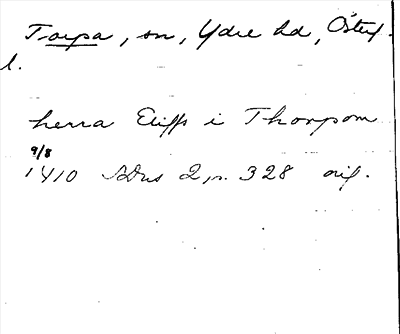 Torpa, sn, Ydre hd, Östergötl.
herra Eliffs i Thorpom
9/8
1410 SDns 2, p. 328 orig.